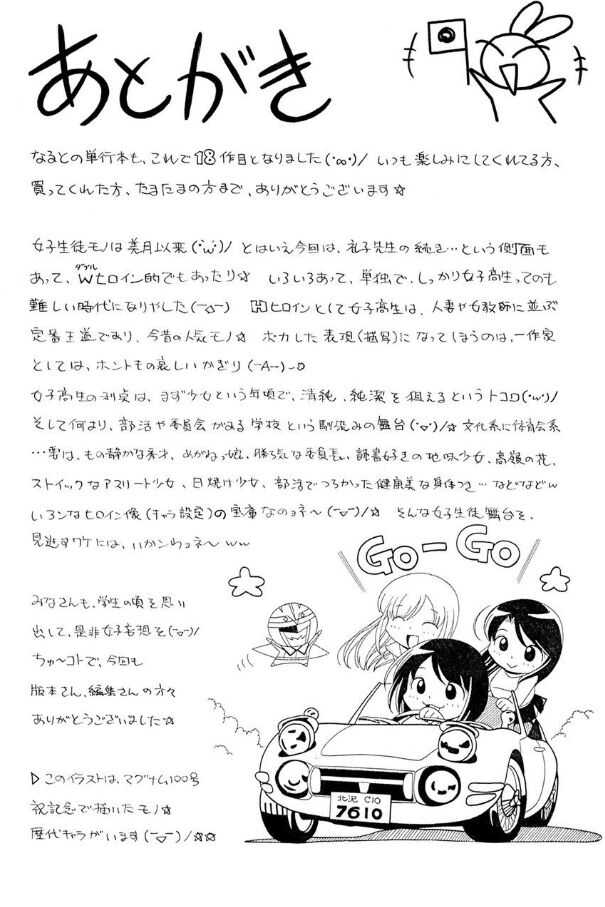 あとがき
なるとの単行本も、これで18作目となりました(・∞・)/ いつも楽しみにしてくれてる方、
買ってくれた方、たまたまの方まで、ありがとうございます☆
女子生徒モノは美月以来(・ω・)/ とはいえ今回は、礼子先生の続き…という側面も
あって、Wヒロイン的でもあったり☆ いろいろあって、単独で、しっかり女子高生ってのも
ダブル
難しい時代になりやした(ー△ー) Hヒロインとして女子高生は、人妻や女教師に並ぶ
定番王道であり、今昔の人気モノ☆ ボカした表現(描写)になってしまうのは、一作家
としては、ホントもの哀しいかぎり(ーAー)
女子高生の利点は、まず少女という年頃で、清純、純潔を狙えるというトコロ(・ω・)/
そして何より、部活や委員会がある学校という馴染みの舞台(・▽・)/☆ 文化系に体育会系
…更は、もの静かな秀才、めがねっ娘、勝ち気な委員長、読書好きの地味少女、高嶺の花、
ストイックなアスリート少女、日焼け少女、部活でつちかった健康美な身体つき…などなどw
いろンなヒロイン像(キャラ設定)の宝庫なのョネ〜(ー▽ー)/☆ そんな女子生徒舞台を、
見逃すワケには、いかンわョネ〜ww
GO-GO
みなさんも、学生の頃を思い
出して、是非女子妄想を(ー▽ー)/
ちゅ〜コトで、今回も
版本さん、編集さんの方々
ありがとうございました☆
▷このイラストは、マグナム100号
祝記念で描いたモノ☆
歴代キャラがいます(ー▽ー)/☆☆
北沢 C10
7610